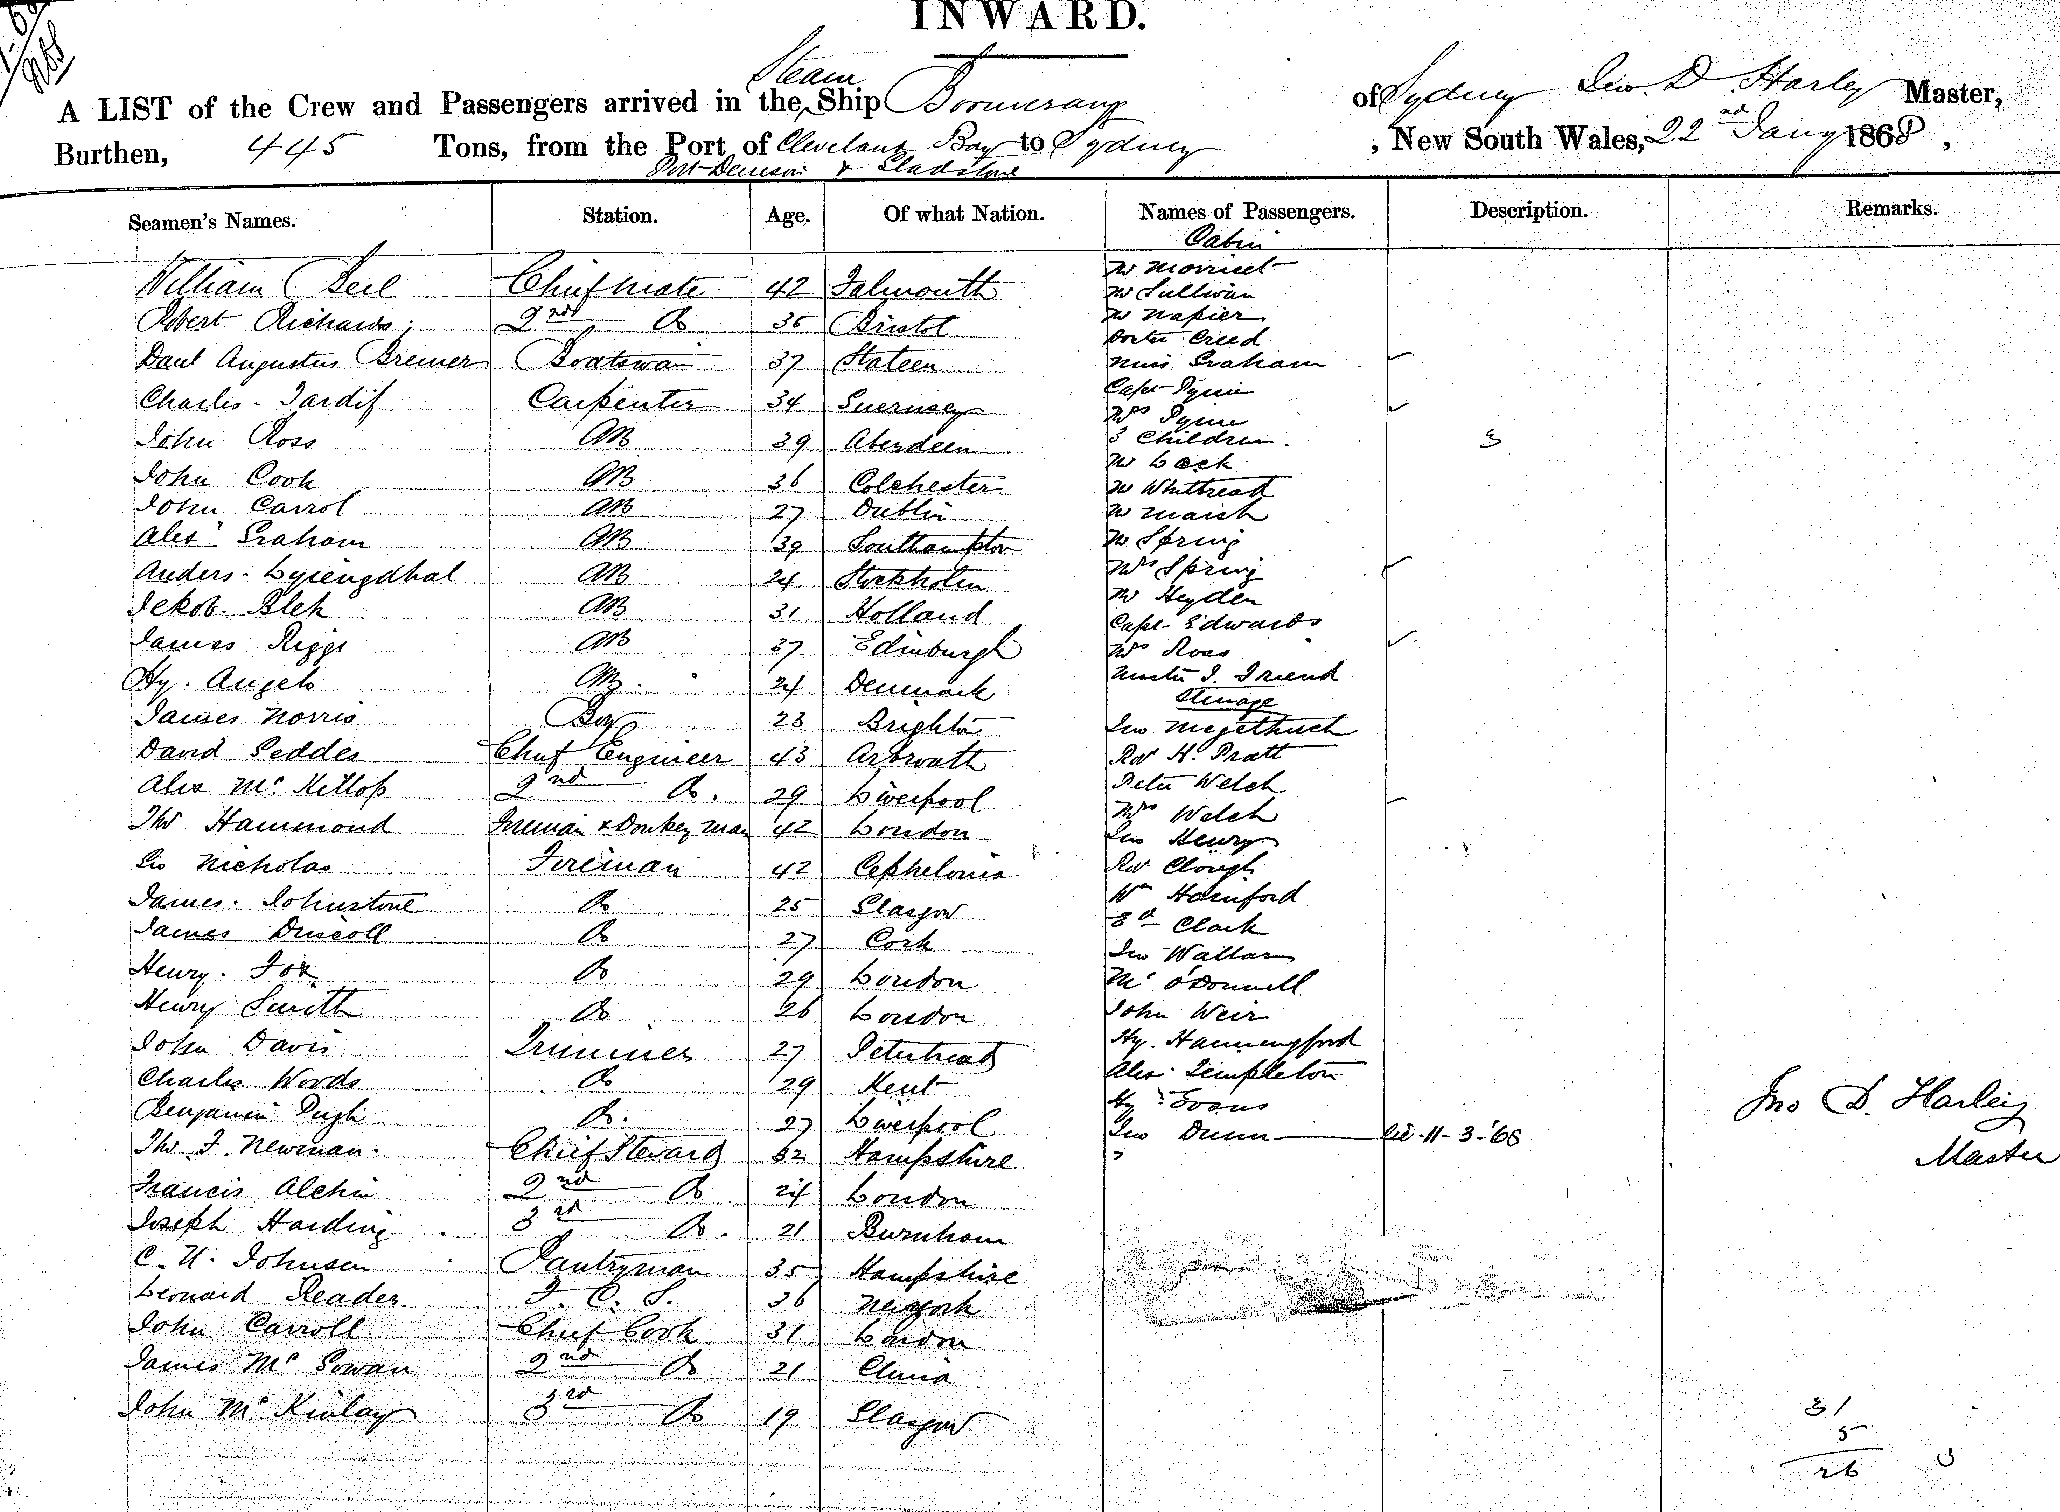 INWARD.
A LIST of the Crew and Passengers arrived in the Steam Ship Boomerang of Sydney D Harley Master,
Burthen, 445 Tons, from the Port of Cleveland Bay to Sydney , New South Wales, 22nd Jany 1868,
Port Denison & Gladstone
Seamen's Names. Station. Age. Of what Nation. Names of Passengers. Description. Remarks.
Cabin
William Chief Mate 42 Falmouth
Mr Sullivan
Robert Richards 2nd Do 36 Bristol
Mr Napier
Creed
Augustus Bremer Boatswain 37
Miss Graham
Charles Tardif Carpenter 34 Guernsey
Capt Pyne
Mrs Pyne
John Ross AB 39 Aberdeen
3 Children 3
John Cook AB 36 Colchester
Mr Whittread
John Carrol AB 27 Dublin
Alexr Graham AB 39 Southampton
Mr Spring
Anders AB 24 Stockholm
Mrs Spring
Jekob Blek AB 31 Holland
Mr Heyden
James Riggs AB 27 Edinburgh
Capt Edwards
Mrs Ross
Hy. Angelo AB 24 Denmark
Master J. Friend
Steerage
James Norris Boy 23 Brighton
David Geddes Chief Engineer 43 Arbroath
H. Pratt
Alex McKillop 2nd Do. 29 Liverpool
Peter Welch
Mrs Welch
Thos Hammond Fireman & Donkey man 42 London
Jno Henry
Geo Nicholas Fireman 42 Cephelonia
Clough
James Johnstone Do 25 Glasgow
Wm
James Driscoll Do 27 Cork
Clark
Henry Fox Do 29 London
O'Donnell
Henry Smith Do 26 London
John Weir
John Davis Trimmer 27 Peterhead
Hy. Hanningford
Charles Woods Do 29 Kent
Alex Templeton
Benjamin Pugh Do. 27 Liverpool
Hy Evans
Jno Dunn 11-3-'68
Jno D. Harley
Master
Thos F. Newman Chief Steward 32 Hampshire
Francis Alchin 2nd Do 24 London
Joseph Harding 3rd Do. 21 Burnham
C. U. Johnson Pantryman 35 Hampshire
Leonard Reader F. C. S. 36 New york
John Carroll Chief Cook 31 London
James McGowan 2nd Do 21 China
John McKinlay 3rd Do 19 Glasgow
31
5
26